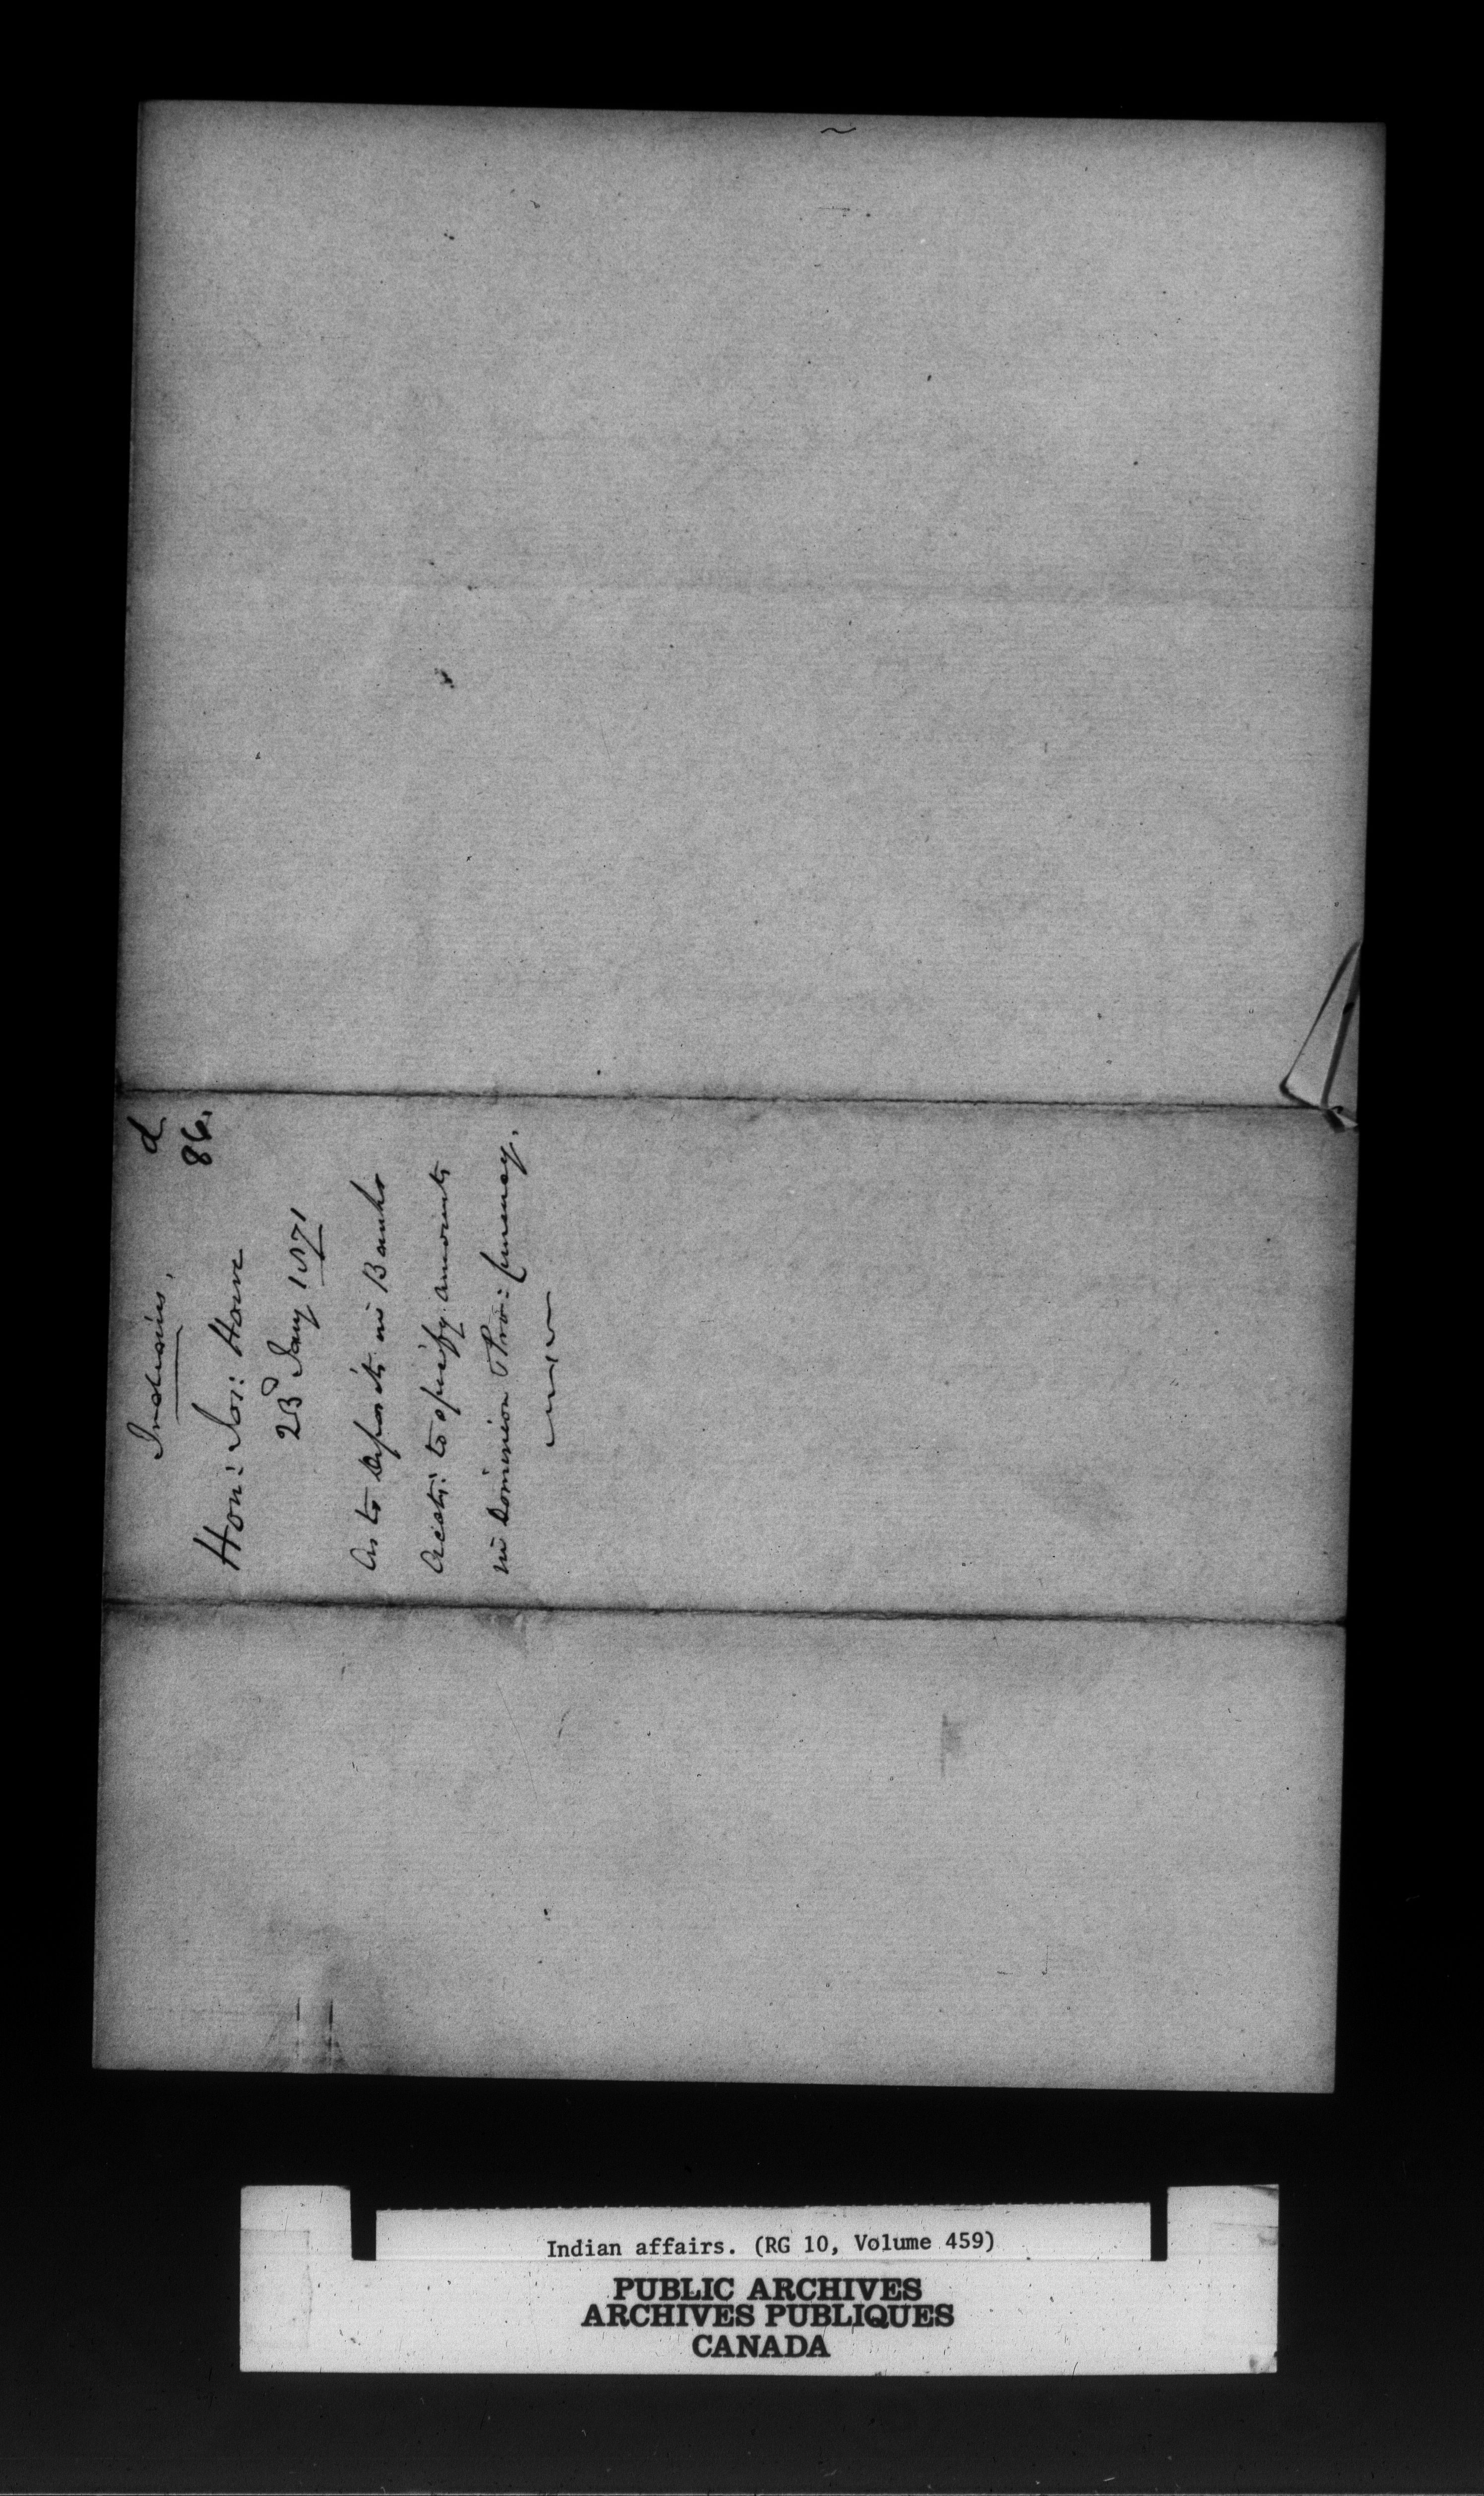 Indians.
d
86.
Hon: Jos: Howe
23d Jany 1871
As to deposits in Banks
to specify amounts
in Dominion Currency.
Indian affairs. (RG 10, Volume 459)
PUBLIC ARCHIVES
ARCHIVES PUBLIQUES
CANADA